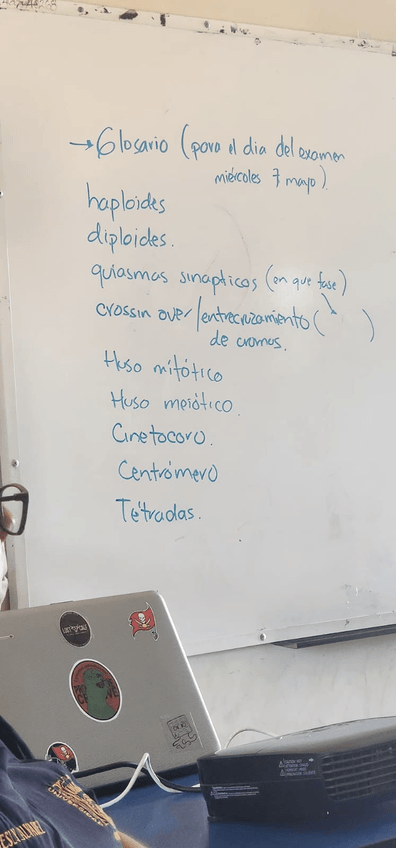 → Glosario (para el dia del examen
miércoles 7 mayo).
haploides
diploides.
quiasmas sinapticos (en que fase)
crossin over/entrecruzamiento ( )
de cromos.
Huso mitótico
Huso meiótico.
Cinetocoro.
Centrómero
Tétradas.